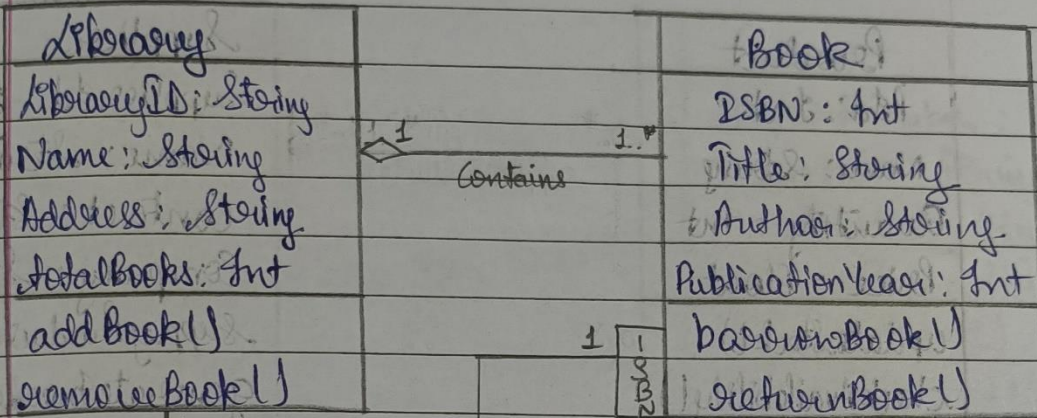 Library
LibraryID: String
Name: String
Address: String
totalBooks: Int
addBook()
removeBook()
1
1..*
Contains
Book
ISBN: Int
Title: String
Author: String
PublicationYear: Int
barrowBook()
returnBook()
1
ISBN